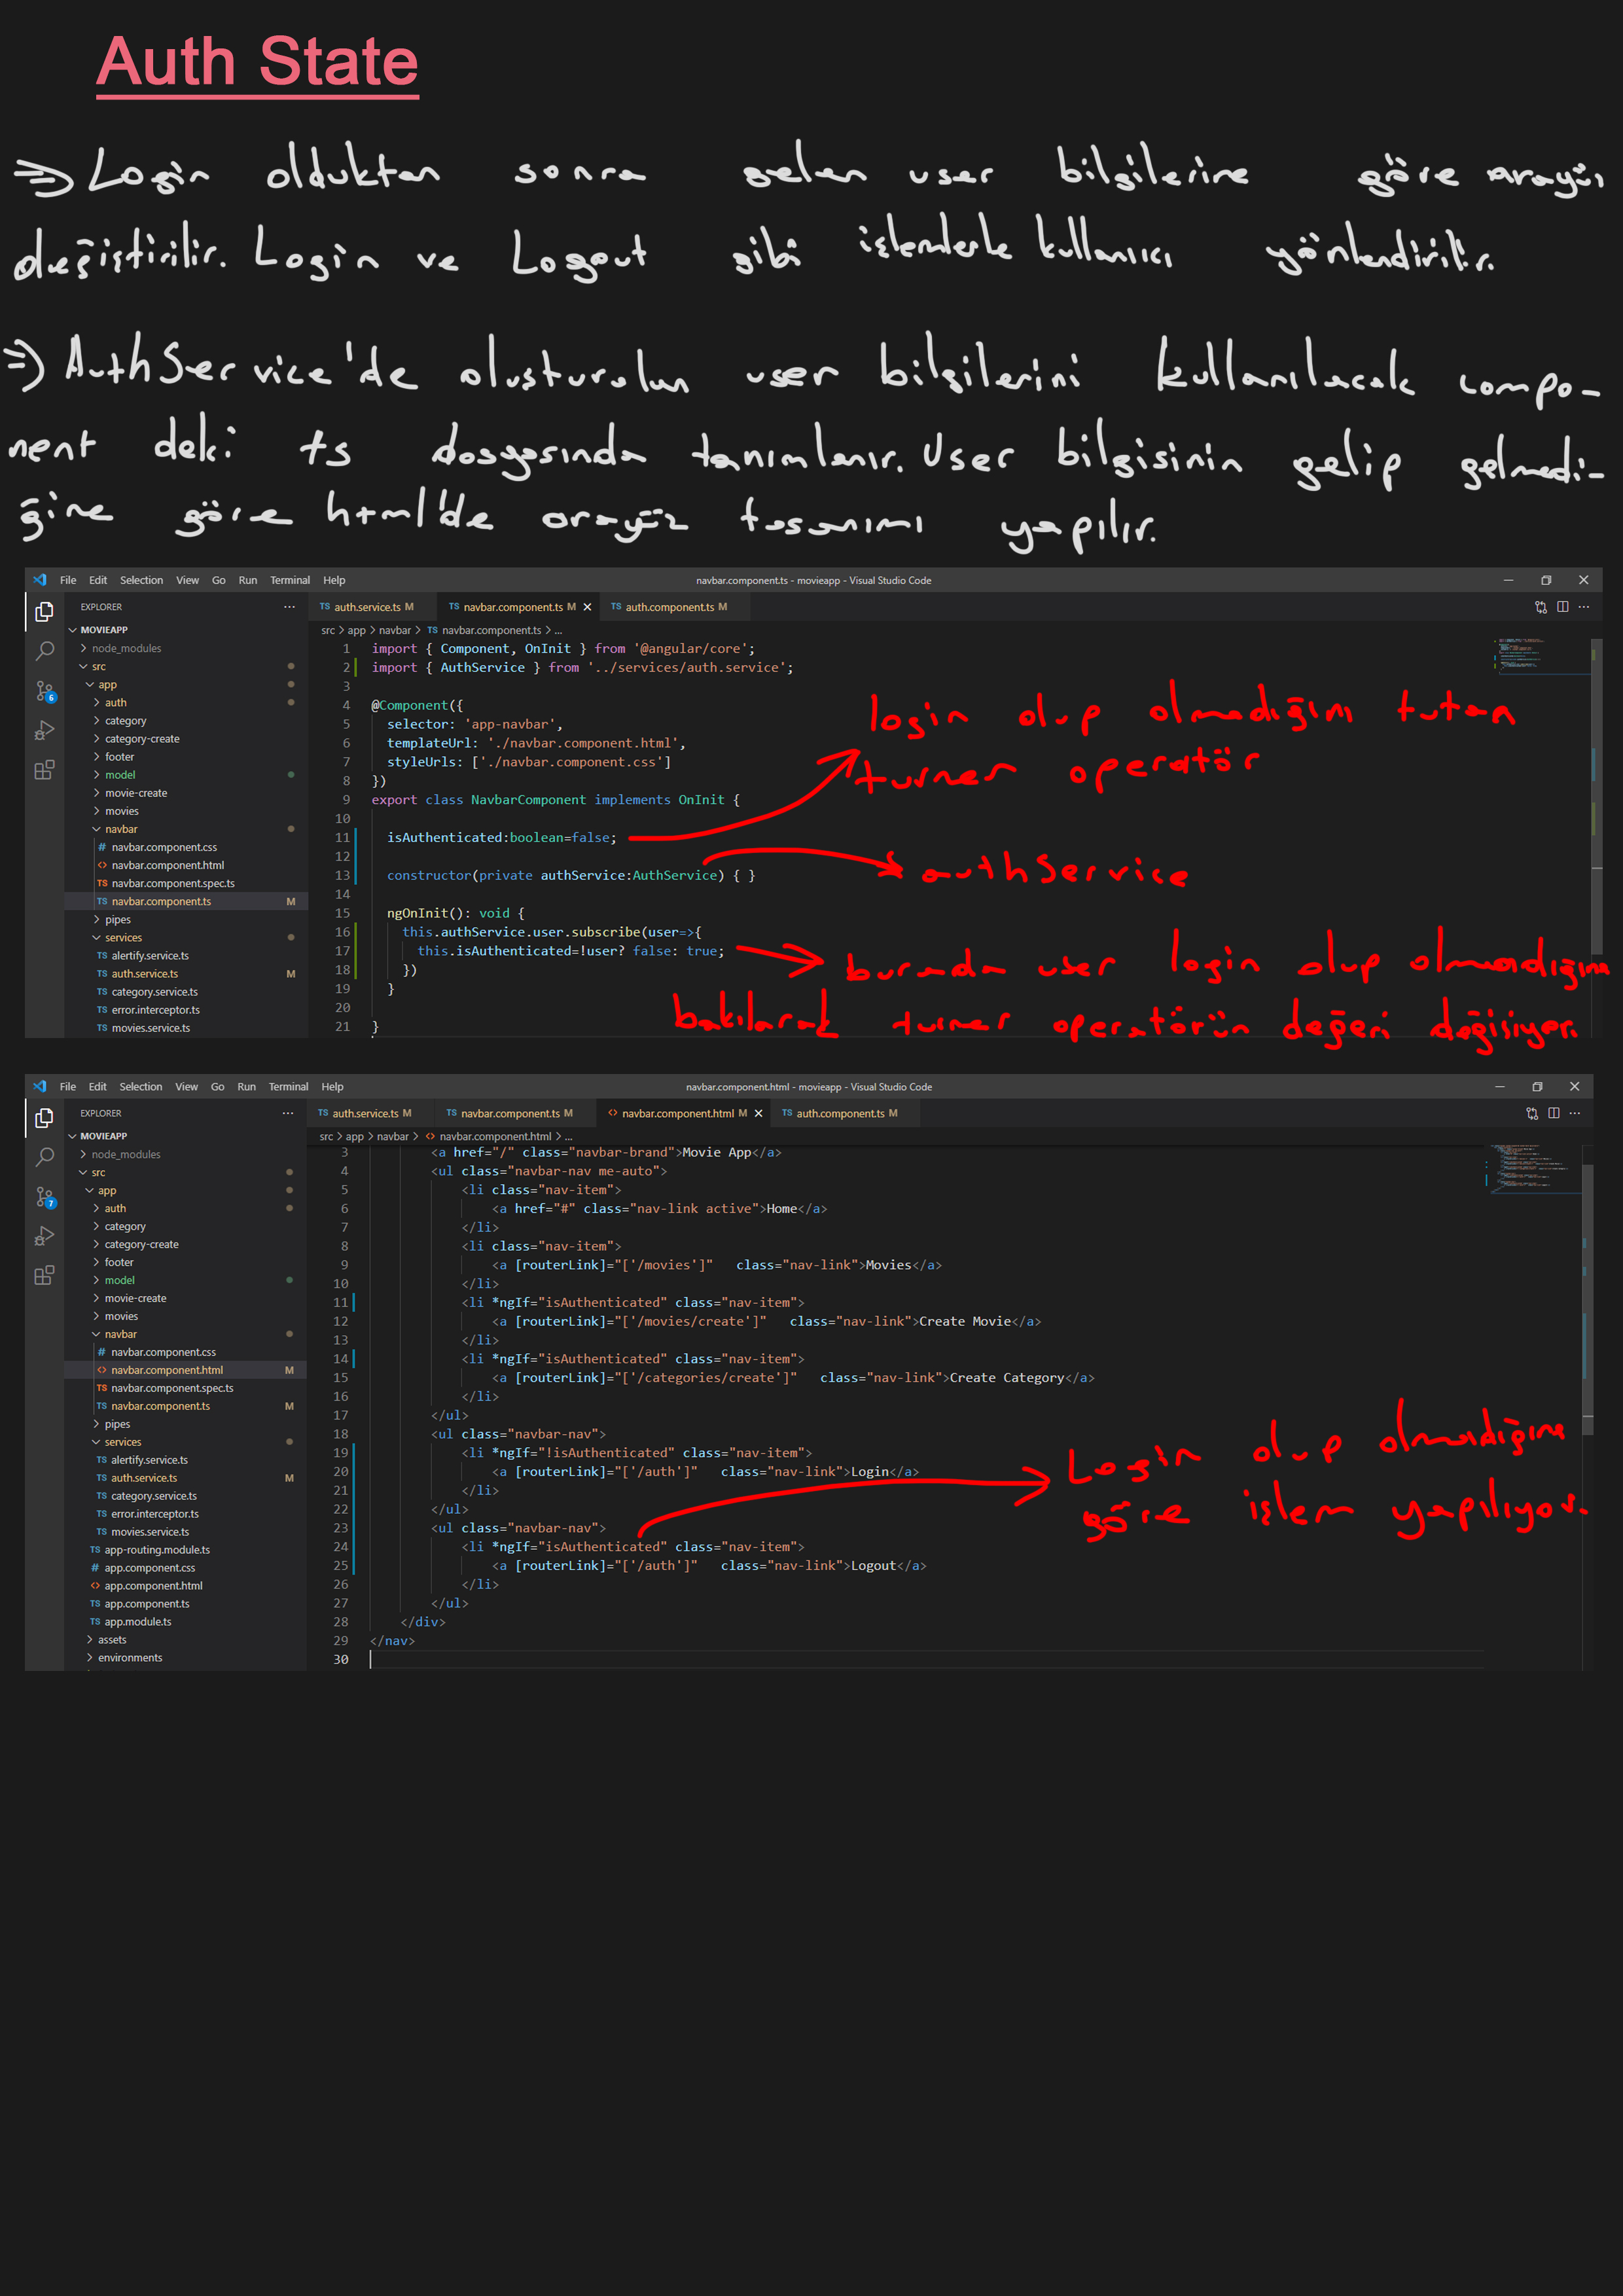 Auth State
=> Login olduktan sonra gelen user bilgilerine göre arayüz
değiştirilir. Login ve Logout gibi işlemlerle kullanıcı yönlendirilir.
=> AuthService'de oluşturulan user bilgilerini kullanılacak compo-
nent deki ts dosyasında tanımlanır. User bilgisinin gelip gelmedi-
ğine göre html'de arayüz tasarımı yapılır.
File Edit Selection View Go Run Terminal Help navbar.component.ts - movieapp - Visual Studio Code
EXPLORER ...
MOVIEAPP
node_modules
src
app
auth
category
category-create
footer
model
movie-create
movies
navbar
# navbar.component.css
<> navbar.component.html
TS navbar.component.spec.ts
TS navbar.component.ts M
pipes
services
TS alertify.service.ts
TS auth.service.ts M
TS category.service.ts
TS error.interceptor.ts
TS movies.service.ts
6
TS auth.service.ts M TS navbar.component.ts M × TS auth.component.ts M
src > app > navbar > TS navbar.component.ts > ...
1 import { Component, OnInit } from '@angular/core';
2 import { AuthService } from '../services/auth.service';
3
4 @Component({
5 selector: 'app-navbar',
6 templateUrl: './navbar.component.html',
7 styleUrls: ['./navbar.component.css']
8 })
9 export class NavbarComponent implements OnInit {
10
11 isAuthenticated:boolean=false;
12
13 constructor(private authService:AuthService) { }
14
15 ngOnInit(): void {
16 this.authService.user.subscribe(user=>{
17 this.isAuthenticated=!user? false: true;
18 })
19 }
20
21 }
login olup olmadığını tutan
turner operatör
authService
burada user login olup olmadığına
bakılarak turner operatörün değeri değişiyor.
File Edit Selection View Go Run Terminal Help navbar.component.html - movieapp - Visual Studio Code
EXPLORER ...
MOVIEAPP
node_modules
src
app
auth
category
category-create
footer
model
movie-create
movies
navbar
# navbar.component.css
<> navbar.component.html M
TS navbar.component.spec.ts
TS navbar.component.ts M
pipes
services
TS alertify.service.ts
TS auth.service.ts M
TS category.service.ts
TS error.interceptor.ts
TS movies.service.ts
TS app-routing.module.ts
# app.component.css
<> app.component.html
TS app.component.ts
TS app.module.ts
assets
environments
7
TS auth.service.ts M TS navbar.component.ts M <> navbar.component.html M × TS auth.component.ts M
src > app > navbar > <> navbar.component.html > ...
3 <a href="/" class="navbar-brand">Movie App</a>
4 <ul class="navbar-nav me-auto">
5 <li class="nav-item">
6 <a href="#" class="nav-link active">Home</a>
7 </li>
8 <li class="nav-item">
9 <a [routerLink]="['/movies']" class="nav-link">Movies</a>
10 </li>
11 <li *ngIf="isAuthenticated" class="nav-item">
12 <a [routerLink]="['/movies/create']" class="nav-link">Create Movie</a>
13 </li>
14 <li *ngIf="isAuthenticated" class="nav-item">
15 <a [routerLink]="['/categories/create']" class="nav-link">Create Category</a>
16 </li>
17 </ul>
18 <ul class="navbar-nav">
19 <li *ngIf="!isAuthenticated" class="nav-item">
20 <a [routerLink]="['/auth']" class="nav-link">Login</a>
21 </li>
22 </ul>
23 <ul class="navbar-nav">
24 <li *ngIf="isAuthenticated" class="nav-item">
25 <a [routerLink]="['/auth']" class="nav-link">Logout</a>
26 </li>
27 </ul>
28 </div>
29 </nav>
30
Login olup olmadığına
göre işlem yapılıyor.